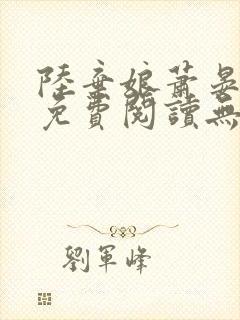 陸棄娘蕭晏
免費閱讀無
劉軍峰